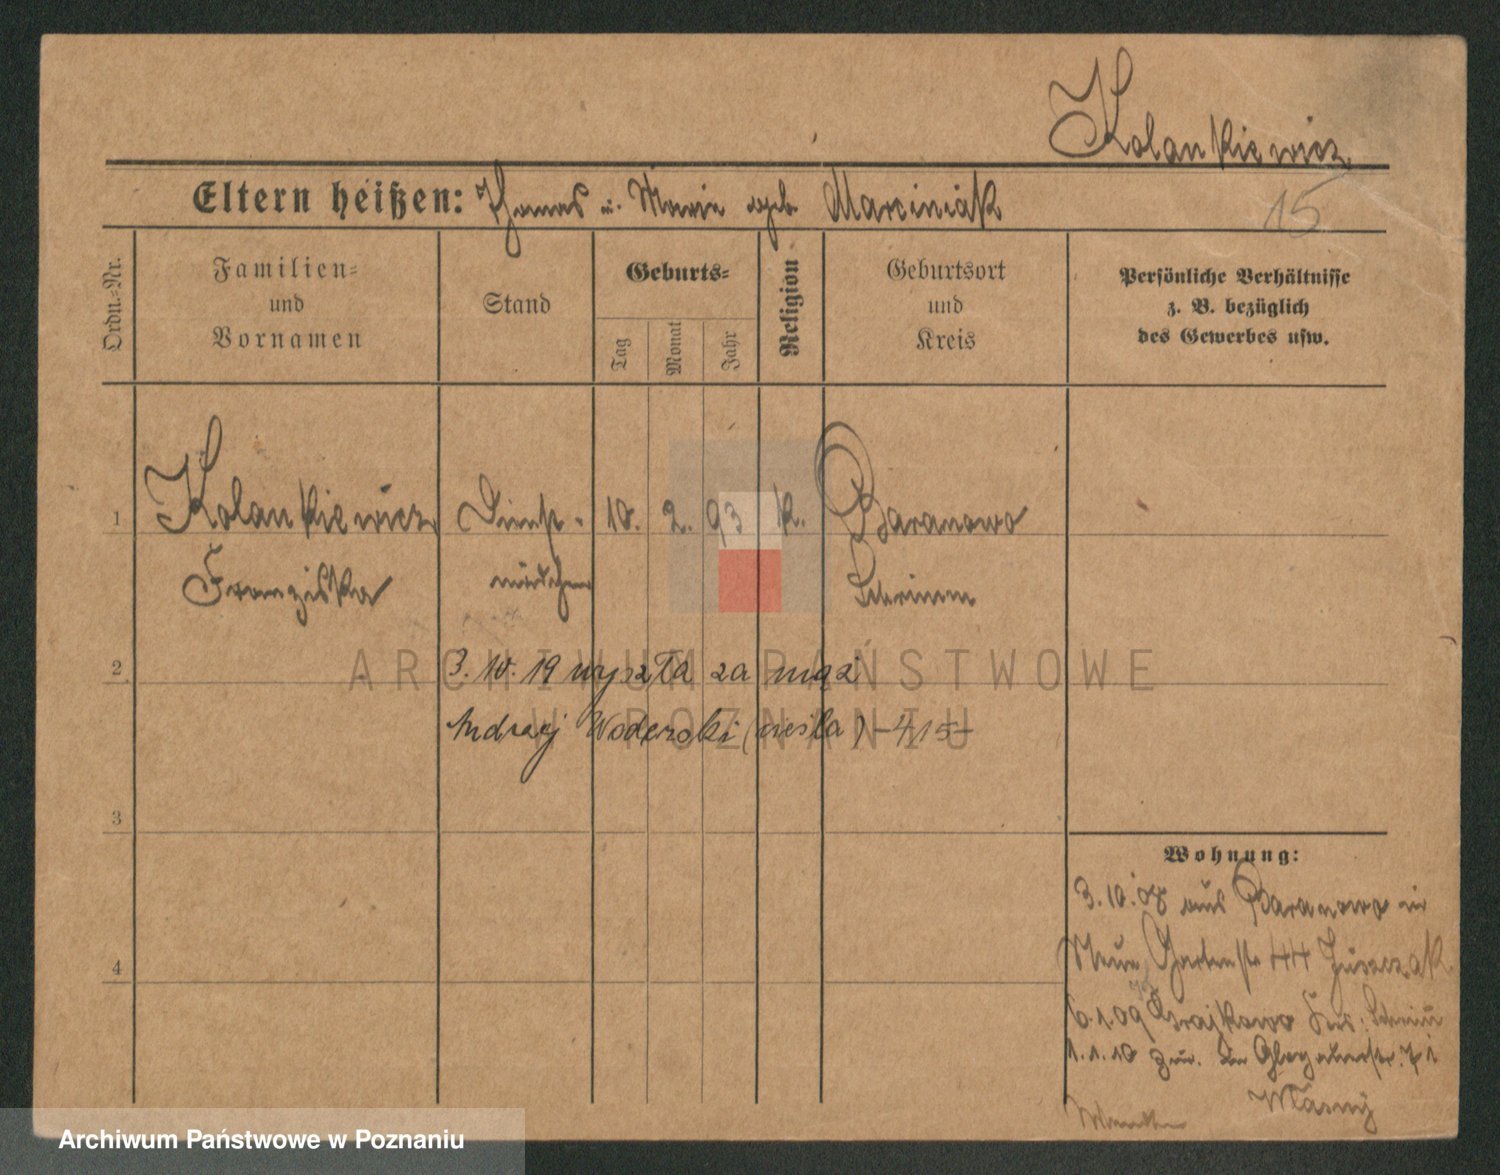 Kolankiewicz
Eltern heißen: Thomas u. Marie geb. Marciniak
15
Ordn.-Nr.
Familien- und Vornamen
Stand
Geburts-
Tag
Monat
Jahr
Religion
Geburtsort und Kreis
Persönliche Verhältnisse
z. B. bezüglich
des Gewerbes usw.
1 Kolankiewicz Dienst- 10. 2. 93 k. Baranowo
Franziska mädchen Schrimm
2 3.10.19 wyszła za mąż
Andrzej (cieśla) -415-
3
Wohnung:
3.10.08 aus Baranowo in
Neue Gartenstr 44 Juszczak
4
6.1.09 Krs. Schrim
1.1.10 zur. Glogauerstr. 71
Masny
ARCHIWUM PAŃSTWOWE
W POZNANIU
Archiwum Państwowe w Poznaniu